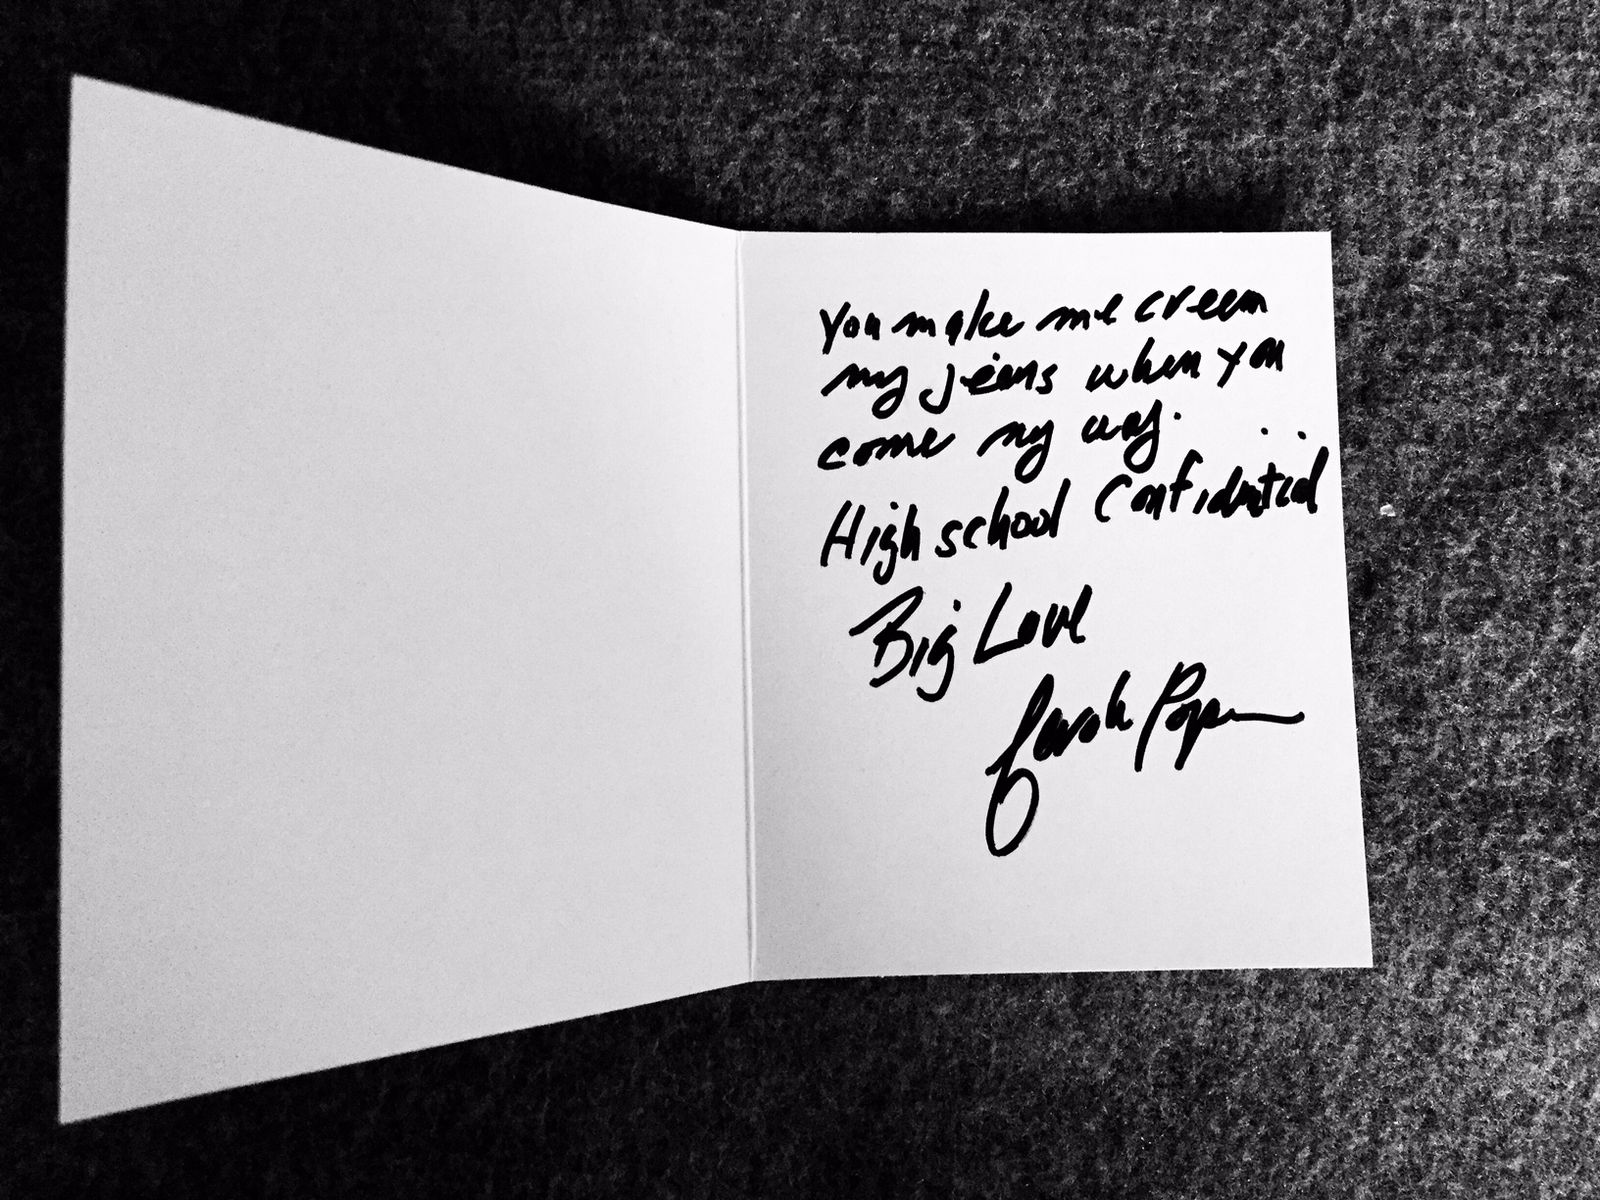 You make me creem
my jeans when you
come my way.
High school Confidential
Big Love
Carole Pope